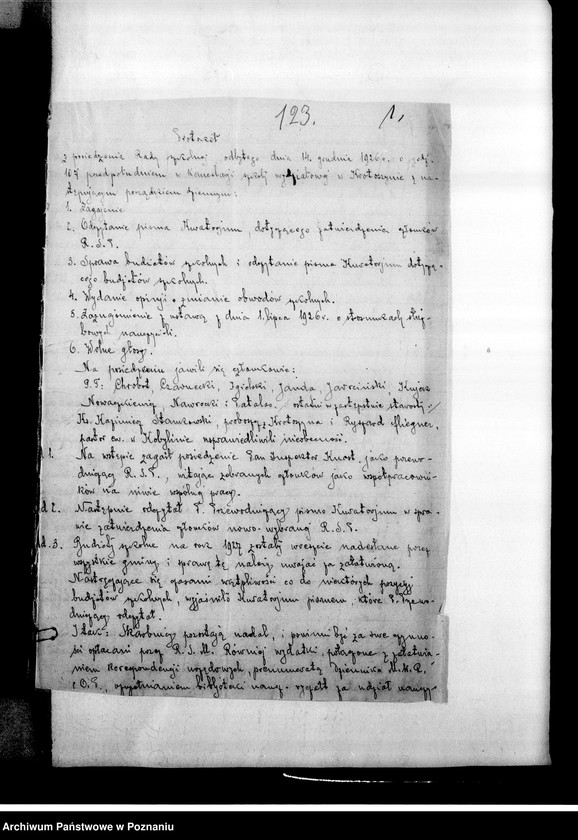 123. 1.
Protokół
z posiedzenia Rady szkolnej odbytego dnia 14. grudnia 1926 r. o godz.
10½ przedpołudniem w Kancelarji szkoły wydziałowej w Krotoszynie z na-
stępującym porządkiem dziennym:
1. Zagajenie
2. Odczytanie pisma Kuratorjum, dotyczącego zatwierdzenia członków
R.S.P.
3. Sprawa budżetów szkolnych i odczytanie pisma Kuratorjum dotyczą-
cego budżetów szkolnych.
4. Wydanie opinji o zmianie obwodów szkolnych.
5. Zaznajomienie z ustawą z dnia 1. lipca 1926 r. o stosunkach służ-
bowych nauczycieli.
6. Wolne głosy.
Na posiedzeniu jawili się członkowie:
P.P: Chrobot, Czarnecki, Igielski, Janda, Jarociński, Kujaw
Nawrocki i Patalas. ostatni w zastępstwie starosty
Ks. Kazimierz Stankowski, proboszcz z Krotoszyna i Ryszard
pastor ew. w Kobylinie usprawiedliwili nieobecność.
Ad 1. Na wstępie zagaił posiedzenie Pan Inspektor jako przewo-
dniczący R.S.P., witając zebranych członków jako współpracowni-
ków na niwie wspólnej pracy.
ad 2. Następnie odczytał P. Przewodniczący pismo Kuratorjum w spra-
wie zatwierdzenia członków nowo-wybranej R.S.P.
ad. 3. Budżety szkolne na rok 1927 zostały wcześnie nadesłane przez
wszystkie gminy i sprawę tę należy uważać za załatwioną.
Nastręczające się czasami wątpliwości co do niektórych pozycyj
budżetów szkolnych, wyjaśniło Kuratorjum pismem, które P. Przewo-
dniczący odczytał.
I tak: Skarbnicy pozostają nadal, i powinni być za swe czynno-
ści opłacani przez R.S.M. Również wydatki, połączone z załatwia-
niem korespondencji urzędowych, prenumeratą Dziennika M.W.R.
i O.P., uzupełnianiem bibljoteki naucz. za udział nauczy-